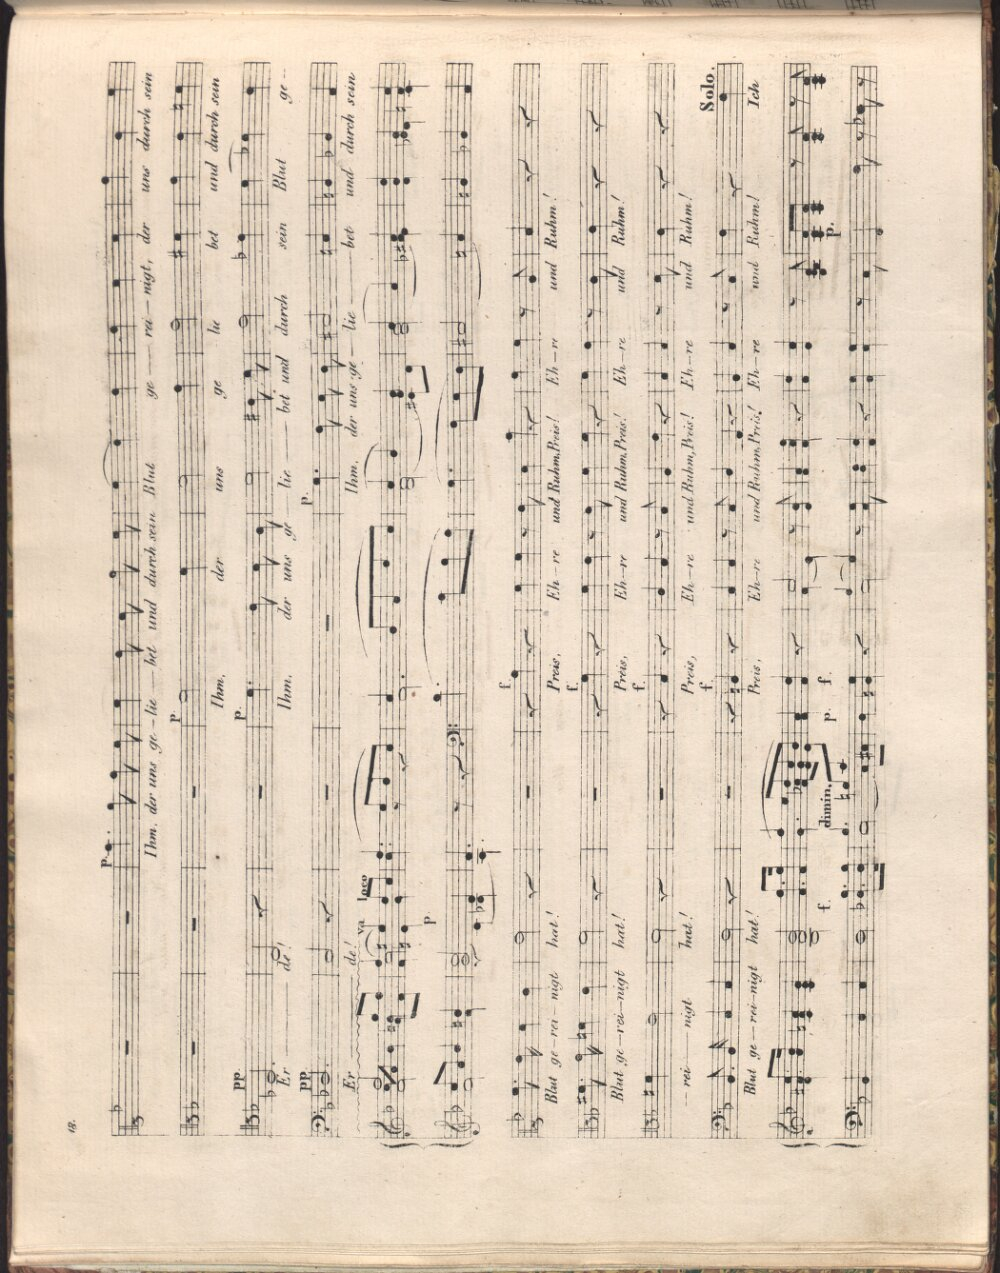 p Ihm. der uns ge-lie-bet und durch sein Blut ge-rei-nigt, der uns durch sein
p Ihm, der uns ge lie bet und durch sein
pp p
Er de! Ihm. der uns ge lie-bet und durch sein Blut ge-
pp p.
Er de! Ihm. der uns ge-lie bet und durch sein
va loco
p
f
Blut ge-rei-nigt hat! Preis, Eh-re und Ruhm, Preis! Eh-re und Ruhm!
f.
Blut ge-rei-nigt hat! Preis, Eh-re und Ruhm, Preis! Eh-re und Ruhm!
f
-rei-nigt hat! Preis, Eh-re und Ruhm, Preis! Eh-re und Ruhm!
f Solo.
Blut ge-rei-nigt hat! Preis, Eh-re und Ruhm, Preis! Eh-re und Ruhm! Ich
f. dimin. p. f. p.